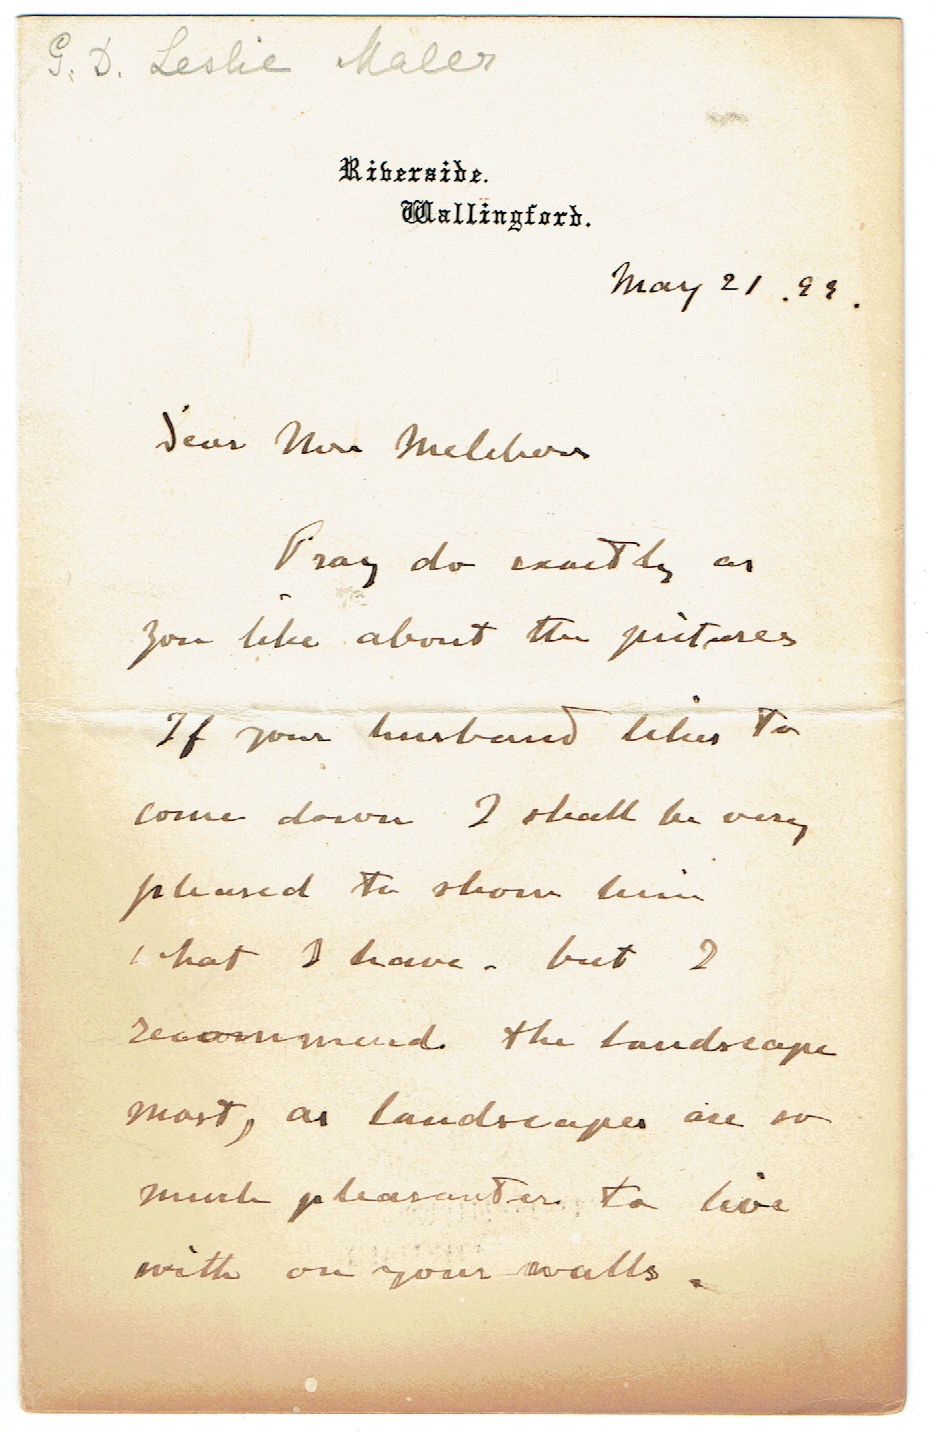 G. D. Leslie
Riverside.
Wallingford.
May 21 .99.
Dear Mrs
Pray do exactly as
you like about the pictures
If your husband likes to
come down I shall be very
pleased to show him
what I have. but I
recommend. the landscape
most, as landscapes are so
much pleasanter to live
with on your walls.